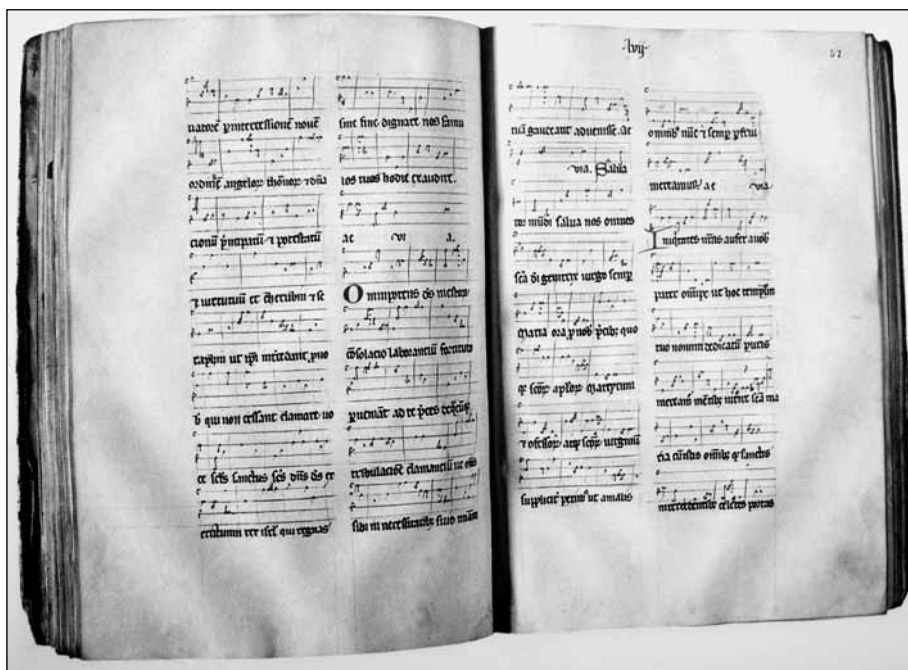 natorē ꝑ intercessionē novē
ordinū angeloꝝ thronoꝝ ⁊ dn̄a
cionū p̄ncipatū ⁊ potestatū
⁊ virtutum et cherubin ⁊ se
raphin ut ip̄i intēdant ꝓ no
b qui non cessant clamare vo
ce sc̄s sanctus sc̄s dn̄s d̄s ex
ercituum rex isr̄l qui regnas
sine fine dignare nos famu
los tuos hodie exaudire.
ae vi a.
Omnipotens d̄s mestoꝝ
cōsolacio laboranciū fortitudo
ꝑveniāt ad te p̄ces
tribulacioē clamanciū ut om̄s
sibi in necessitatibꝫ suis
lvij
57
tuā gaudeant advenisse. Ae
via. Salva
tor mūdi salva nos omnes
sc̄a di genitrix virgo semꝑ
maria ora ꝓ nob p̄cibꝫ quo
qꝫ sc̄oꝝ ap̄loꝝ martyrum
⁊ ꝯfessoꝝ atqꝫ sc̄oꝝ virginū
suppliciť petimꝰ ut a malis
omnibꝫ nūc ⁊ semꝑ ꝑfrui
mereamur ae via
Iniqitates nr̄as aufer a nob
pater om̄ps ut hoc templum
tuo nomini dedicatū puris
mereamꝰ mētibꝫ sc̄a ma
ria cūctis omibꝫ qꝫ sanctis
intercedentibꝫ celestes portas